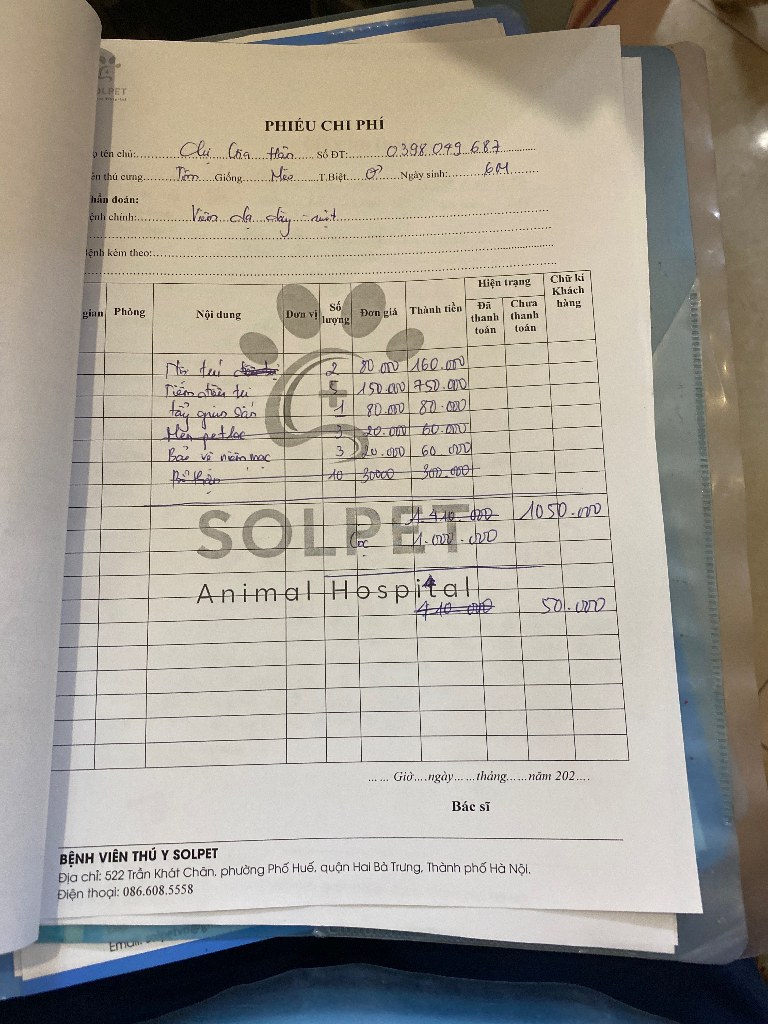 OLPET
PHIẾU CHI PHÍ
ọ tên chủ:......Chị Gia Hân......Số ĐT:......0398.049.687......
ên thú cưng......Giống......Mèo......T.Biệt......♂......Ngày sinh:......6M......
hẩn đoán:
ệnh chính:......Viêm dạ dày - ruột......
ệnh kèm theo:......
gian Phòng Nội dung Đơn vị Số lượng Đơn giá Thành tiền Hiện trạng Đã thanh toán Chưa thanh toán Chữ kí Khách hàng
Nội trú 2 80.000 160.000
Tiêm điều trị 5 150.000 750.000
Tẩy giun sán 1 80.000 80.000
Men petlac 3 20.000 60.000
Bảo vệ niêm mạc 3 20.000 60.000
10 30000 300.000
1.410.000 1050.000
Cọc 1.000.000
410.000 50.000
SOLPET
Animal Hospital
...... Giờ....ngày......tháng......năm 202....
Bác sĩ
BỆNH VIÊN THÚ Y SOLPET
Địa chỉ: 522 Trần Khát Chân, phường Phố Huế, quận Hai Bà Trưng, Thành phố Hà Nội.
Điện thoại: 086.608.5558
Email: